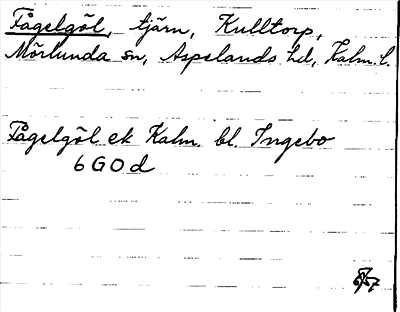 Fågelgöl, tjärn, Kulltorp,
Mörlunda sn, Aspelands hd, Kalm. l.
Fågelgöl ek Kalm. bl. Ingebo
6 G 0 d